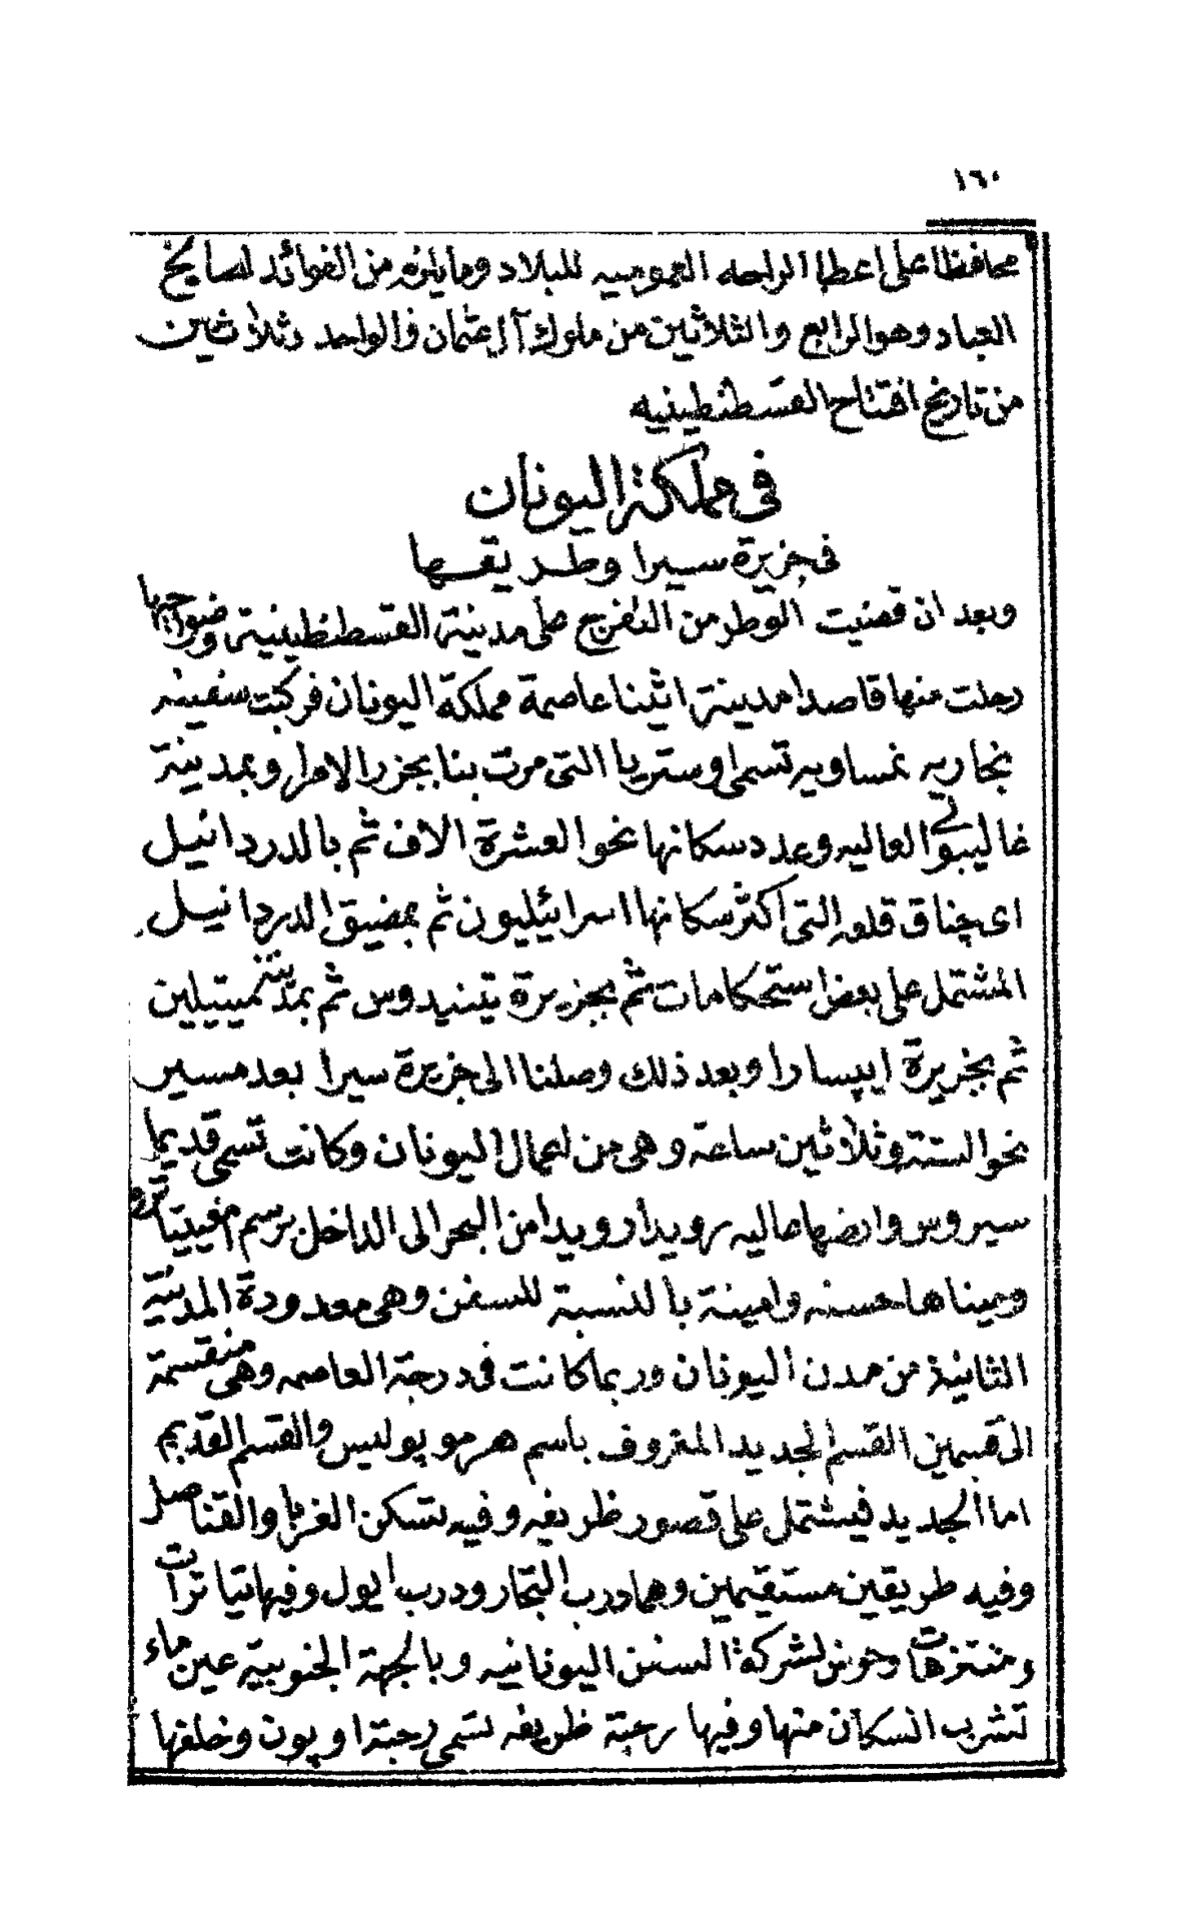 ١٦٠
محافظا على اعطا الراحه العموميه للبلاد وما يلزم من الفوائد لصالح
العباد وهو الرابع والثلاثين من ملوك آل عثمان والواحد وثلاثين
من تاريخ افتتاح القسطنطينيه
فى مملكة اليونان
فى جزيرة سيرا وطريقها
وبعد ان قضيت الوطر من التفرج على مدينة القسطنطينية وضواحيها
رحلت منها قاصدا مدينة اثينا عاصمة مملكة اليونان فركبت سفينه
بخاريه نمساويه تسمى اوستريا التى مرت بنا بجزر الامرا وبمدينة
غاليبولى العاليه وعدد سكانها نحو العشرة الاف ثم بالدردانيل
اى چناق قلعه التى اكثر سكانها اسرائيليون ثم بمضيق الدردانيل
المشتمل على بعض استحكامات ثم بجزيرة تينيدوس ثم بمدينة ميتيلين
ثم بجزيرة ايپسارا وبعد ذلك وصلنا الى جزيرة سيرا بعد مسير
نحو الستة وثلاثين ساعة وهى من اعمال اليونان وكانت تسمى قديما
سيروس وارضها عاليه رويدا رويدا من البحر الى الداخل برسم امفيتياترو
وميناها حسنه وامينة بالنسبة للسفن وهى معدودة المدينة
الثانية من مدن اليونان وربما كانت فى درجة العاصمه وهى منقسمة
الى قسمين القسم الجديد المعروف باسم هرموپوليس والقسم القديم
اما الجديد فيشتمل على قصور ظريفه وفيه تسكن الغربا والقناصل
وفيه طريقين مستقيمين وهما درب التجار ودرب ايول وفيها تياترات
ومنتزهات وحوض لشركة السفن اليونانيه وبالجهة الجنوبية عين ماء
تشرب السكان منها وفيها رحبة ظريفه تسمى رحبة اوپون وخلفها